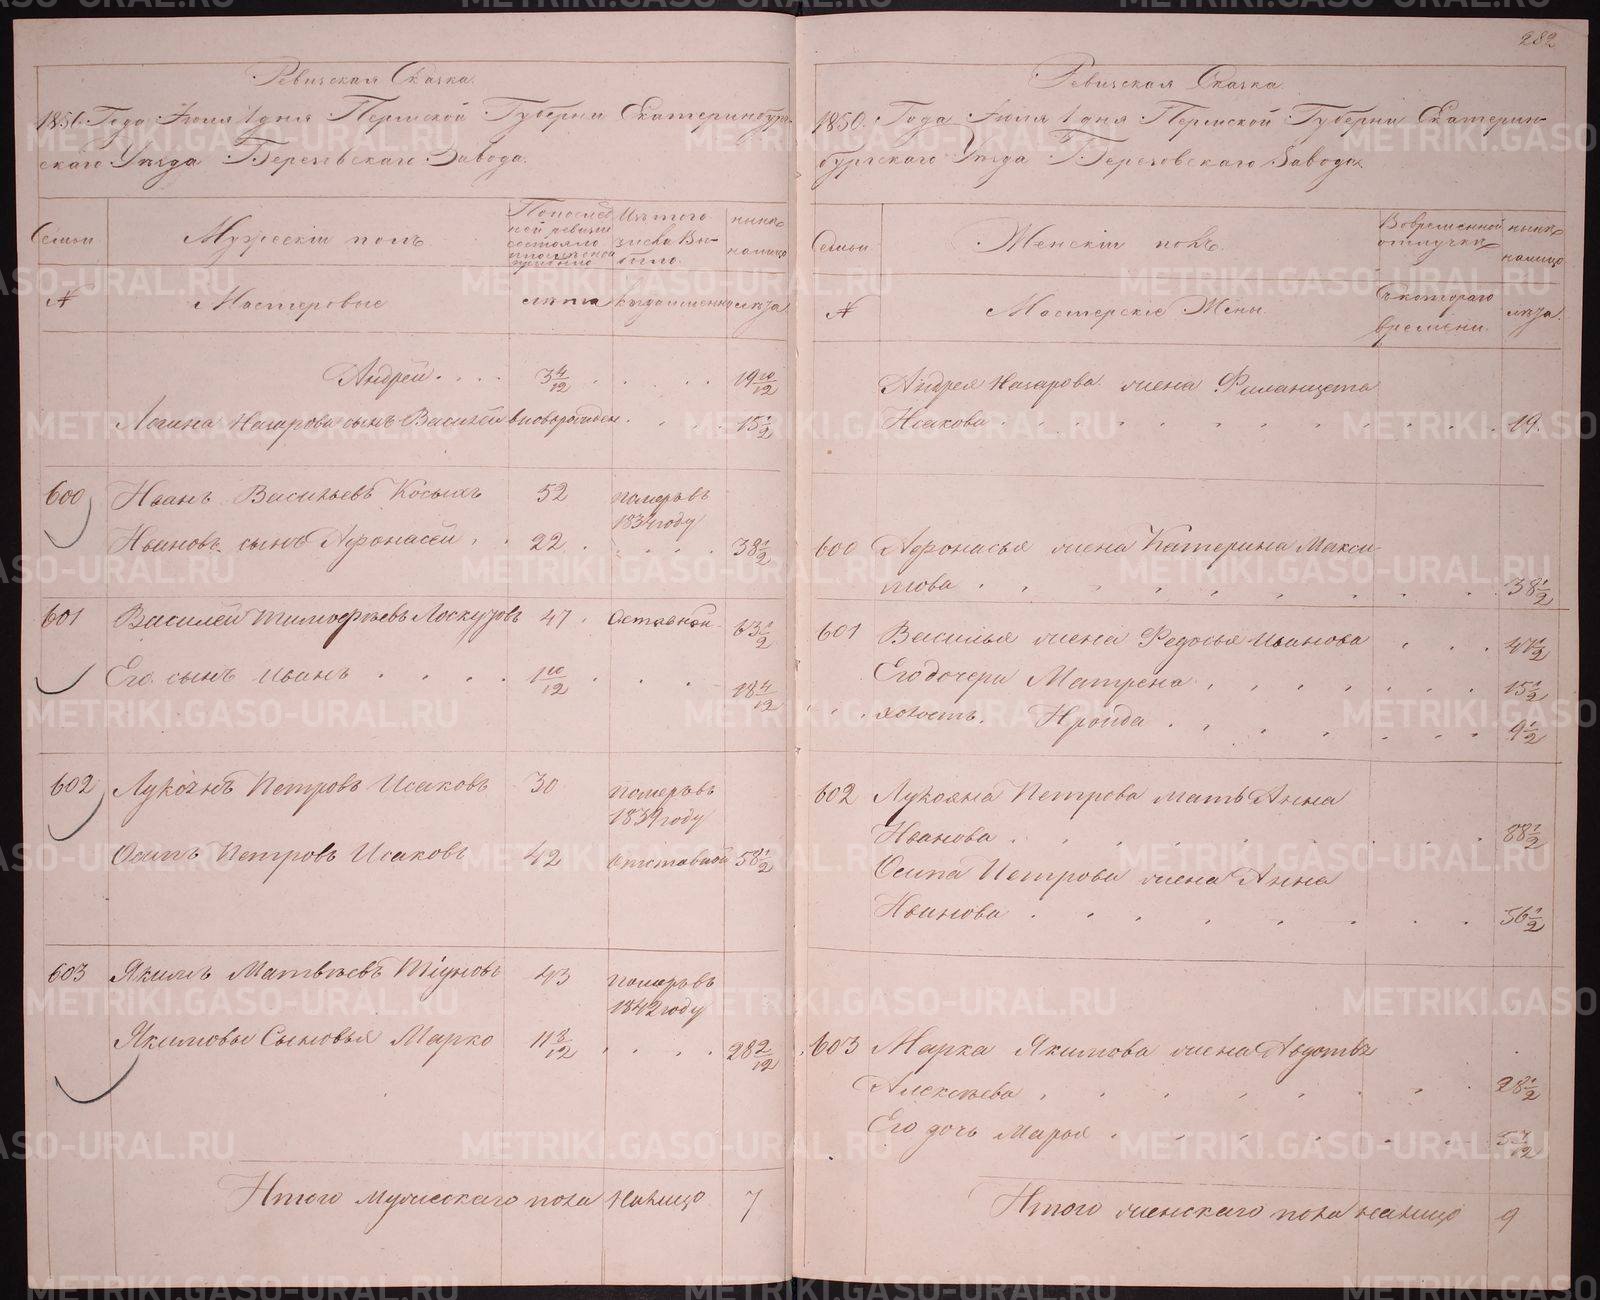 282
Ревижская Сказка.
1850. Года Июля 1 дня Пермской Губерніи Екатеринбург-
скаго Уѣзда Березовскаго Завода.
Семьи
Мужескій полъ
По послѣд
ней ревизіи
состояло
Изъ того
числа вы-
было
нынѣ
на лицо
№
Мастеровые
лѣта
когда именно
лѣта
Андрей . . . . 3 4/12 . . . . 19 10/12
Логина Назарова сынъ Василей вновьрожден. . . . 15 1/2
600 Иванъ Васильевъ Косыхъ 52 померъ въ
1834 году
Ивановъ сынъ Афонасей . . 22 . . . . 38 1/2
601 Василей Тимофѣевъ Лоскутовъ 47 . Отставной 63 1/2
Его сынъ Иванъ . . . . 1 10/12 . . . 18 4/12
602 Лукоянъ Петровъ Исаковъ 30 померъ въ
1839 году
Осипъ Петровъ Исаковъ 42 отставной 58 1/2
603 Якимъ Матвѣевъ Тіуновъ 43 померъ въ
1842 году
Якимовы Сыновья Марко 11 8/12 . . . . 28 2/12
Итого мужескаго пола налицо 7
Ревижская Сказка
1850. Года Июля 1 дня Пермской Губерніи Екатерин-
бургскаго Уѣзда Березовскаго Завода
Семьи
Женскій полъ.
Вовременной
отлучкѣ
нынѣ
на лицо
№
Мастерскіе Жены.
съ котораго
времени.
лѣта.
Андрея Назарова жена
Исакова . . . . . . . . . 19.
600 Афонасья жена Катерина Макси-
мова . . . . . . . . 38 1/2
601 Василья жена Федосья Иванова . . . 47 1/2
Его дочери Матрена . . . . . . . 15 1/2
Ираида . . . . . . . 9 1/2
602 Лукояна Петрова мать Анна
Иванова . . . . . . . . 88 1/2
Осипа Петрова жена Анна
Иванова . . . . . . . . 56 1/2
603 Марка Якимова жена Авдотья
Алексѣева . . . . . . . 28 1/2
Его дочь Марья . . . . . . . 5 7/12
Итого женскаго пола налицо 9
METRIKI.GASO-URAL.RU